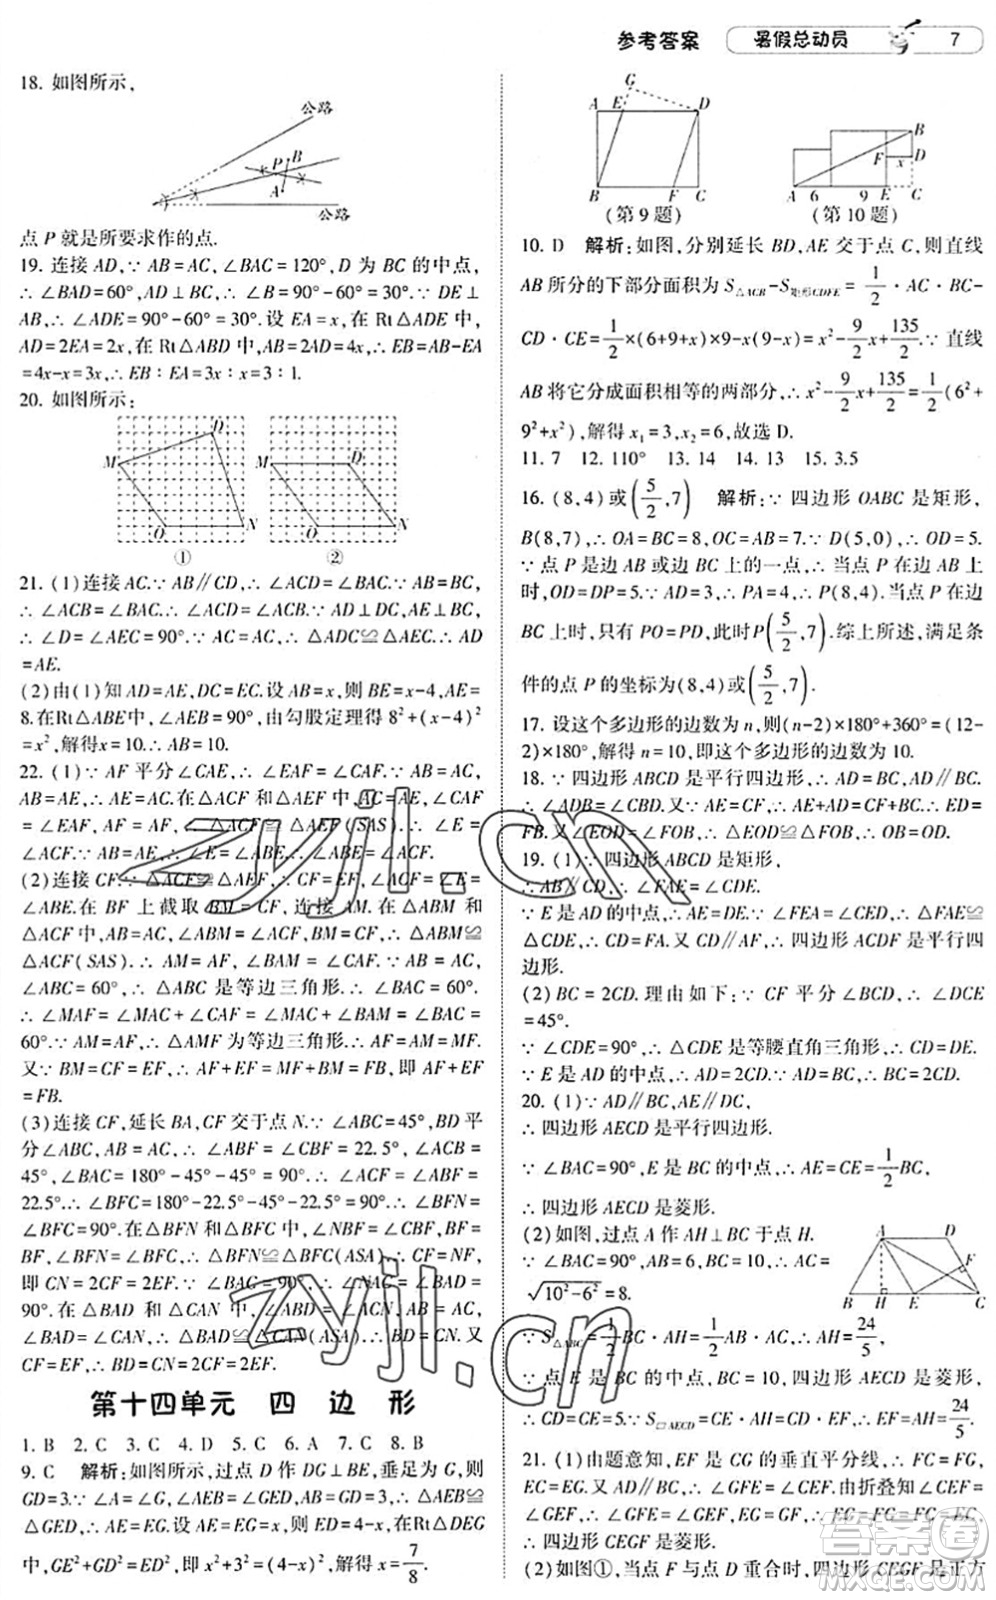 参考答案 暑假总动员 7
18. 如图所示,
公路
P B
A
公路
点 P 就是所要求作的点.
19. 连接 AD,∵ AB=AC,∠BAC=120°,D 为 BC 的中点,
∴ ∠BAD=60°,AD⊥BC,∴ ∠B=90°-60°=30°.∵ DE⊥
AB,∴ ∠ADE=90°-60°=30°.设 EA=x,在 Rt△ADE 中,
AD=2EA=2x,在 Rt△ABD 中,AB=2AD=4x,∴ EB=AB-EA
=4x-x=3x,∴ EB∶EA=3x∶x=3∶1.
20. 如图所示:
M D O N ①
M D O N ②
21. (1)连接 AC.∵ AB∥CD,∴ ∠ACD=∠BAC.∵ AB=BC,
∴ ∠ACB=∠BAC.∴ ∠ACD=∠ACB.∵ AD⊥DC,AE⊥BC,
∴ ∠D=∠AEC=90°.∵ AC=AC,∴ △ADC≌△AEC.∴ AD
=AE.
(2)由(1)知 AD=AE,DC=EC.设 AB=x,则 BE=x-4,AE=
8.在Rt△ABE中,∠AEB=90°,由勾股定理得 8²+(x-4)²
=x²,解得x=10.∴ AB=10.
22. (1)∵ AF 平分∠CAE,∴ ∠EAF=∠CAF.∵ AB=AC,
AB=AE,∴ AE=AC.在 △ACF 和△AEF 中,AC=AE,∠CAF
=∠EAF, AF = AF, ∴ △ACF≌△AEF(SAS).∴ ∠E =
∠ACF.∵ AB=AE,∴ ∠E=∠ABE.∴ ∠ABE=∠ACF.
(2)连接 CF.∵ △ACF≌△AEF,∴ CF=EF,∠ACF=∠E=
∠ABE.在 BF 上截取 BM=CF,连接 AM.在△ABM 和
△ACF 中,AB=AC,∠ABM =∠ACF,BM=CF,∴ △ABM≌
△ACF(SAS).∴ AM = AF, ∠BAM = ∠CAF.∵ AB = AC,
∠ABC=60°,∴ △ABC 是等边三角形.∴ ∠BAC=60°.
∴ ∠MAF= ∠MAC + ∠CAF = ∠MAC + ∠BAM = ∠BAC =
60°.∵ AM=AF,∴ △AMF 为等边三角形.∴ AF=AM=MF.
又∵ BM=CF=EF,∴ AF+EF=MF+BM=FB,即 AF+EF
=FB.
(3)连接 CF,延长 BA,CF 交于点 N.∵ ∠ABC=45°,BD 平
分∠ABC,AB=AC,∴ ∠ABF = ∠CBF = 22.5°,∠ACB =
45°,∠BAC= 180°-45°-45° = 90°.∴ ∠ACF = ∠ABF =
22.5°.∴ ∠BFC=180°-22.5°-45°-22.5°=90°.∴ ∠BFN=
∠BFC=90°.在△BFN 和△BFC 中,∠NBF=∠CBF,BF=
BF,∠BFN=∠BFC,∴ △BFN≌△BFC(ASA).∴ CF=NF,
即 CN = 2CF = 2EF.∵ ∠BAC = 90°,∴ ∠NAC = ∠BAD =
90°.在 △BAD 和 △CAN 中,∠ABD = ∠ACN, AB = AC,
∠BAD=∠CAN,∴ △BAD≌△CAN(ASA).∴ BD=CN.又
CF=EF,∴ BD=2CF=2EF.
第十四单元 四 边 形
1. B 2. C 3. C 4. D 5. C 6. A 7. C 8. B
9. C 解析:如图所示,过点 D 作 DG⊥BE,垂足为 G,则
GD=3.∵ ∠A=∠G,∠AEB=∠GED,AB=GD=3,∴ △AEB≌
△GED,∴ AE=EG.设 AE=EG=x,则 ED=4-x,在Rt△DEG
中,GE²+GD²=ED²,即 x²+3²=(4-x)²,解得x=7/8.
G A E D B F C
(第9题)
B F x D A 6 9 E C
(第10题)
10. D 解析:如图,分别延长 BD,AE 交于点 C,则直线
AB 所分的下部分面积为 S△ACB-S矩形CDFE=1/2·AC·BC-
CD·CE=1/2×(6+9+x)×9-x(9-x)=x²-9/2x+135/2.∵ 直线
AB 将它分成面积相等的两部分,∴ x²-9/2x+135/2=1/2(6²+
9²+x²),解得 x₁=3,x₂=6,故选 D.
11. 7 12. 110° 13. 14 14. 13 15. 3.5
16. (8,4)或(5/2,7) 解析:∵ 四边形 OABC 是矩形,
B(8,7),∴ OA=BC=8,OC=AB=7.∵ D(5,0),∴ OD=5.
∵ 点 P 是边 AB 或边 BC 上的一点,∴ 当点 P 在边 AB 上
时,OD=DP=5.∵ AD=3,∴ PA=4,∴ P(8,4).当点 P 在边
BC 上时,只有 PO=PD,此时P(5/2,7).综上所述,满足条
件的点 P 的坐标为(8,4)或(5/2,7).
17. 设这个多边形的边数为 n,则(n-2)×180°+360°=(12-
2)×180°,解得 n=10,即这个多边形的边数为 10.
18. ∵ 四边形 ABCD 是平行四边形,∴ AD=BC,AD∥BC.
∴ ∠ADB=∠CBD.又∵ AE=CF,∴ AE+AD=CF+BC.∴ ED=
FB.又∵ ∠EOD=∠FOB,∴ △EOD≌△FOB.∴ OB=OD.
19. (1)∵ 四边形 ABCD 是矩形,
∴ AB∥CD,∴ ∠FAE=∠CDE.
∵ E 是 AD 的中点,∴ AE=DE.∵ ∠FEA=∠CED,∴ △FAE≌
△CDE,∴ CD=FA.又 CD∥AF,∴ 四边形 ACDF 是平行四
边形.
(2)BC=2CD.理由如下:∵ CF 平分∠BCD,∴ ∠DCE
=45°.
∵ ∠CDE=90°,∴ △CDE 是等腰直角三角形,∴ CD=DE.
∵ E 是 AD 的中点,∴ AD=2CD.∵ AD=BC,∴ BC=2CD.
20. (1)∵ AD∥BC,AE∥DC,
∴ 四边形 AECD 是平行四边形.
∵ ∠BAC=90°,E 是 BC 的中点,∴ AE=CE=1/2BC,
∴ 四边形 AECD 是菱形.
(2)如图,过点 A 作 AH⊥BC 于点 H.
∵ ∠BAC=90°,AB=6,BC=10,∴ AC=
√(10²-6²)=8.
A D F B H E C
∵ S△ABC=1/2BC·AH=1/2AB·AC,∴ AH=24/5.
∵ 点 E 是 BC 的中点,BC=10,四边形 AECD 是菱形,
∴ CD=CE=5.∵ S□AECD=CE·AH=CD·EF,∴ EF=AH=24/5.
21. (1)由题意知,EF是 CG 的垂直平分线,∴ FC=FG=
EC=EG.又∵ AD∥BC,∴ ∠GFE=∠CEF.由折叠知∠CEF=
∠GEF,∴ ∠GFE=∠GEF,∴ GF=GE,∴ CF=FG=EG=CE,
∴ 四边形 CEGF 是菱形.
(2)如图①,当点 F 与点 D 重合时,四边形 CEGF 是正方
zyjl.cn
zyjl.cn
答案圈
MXQE.COM